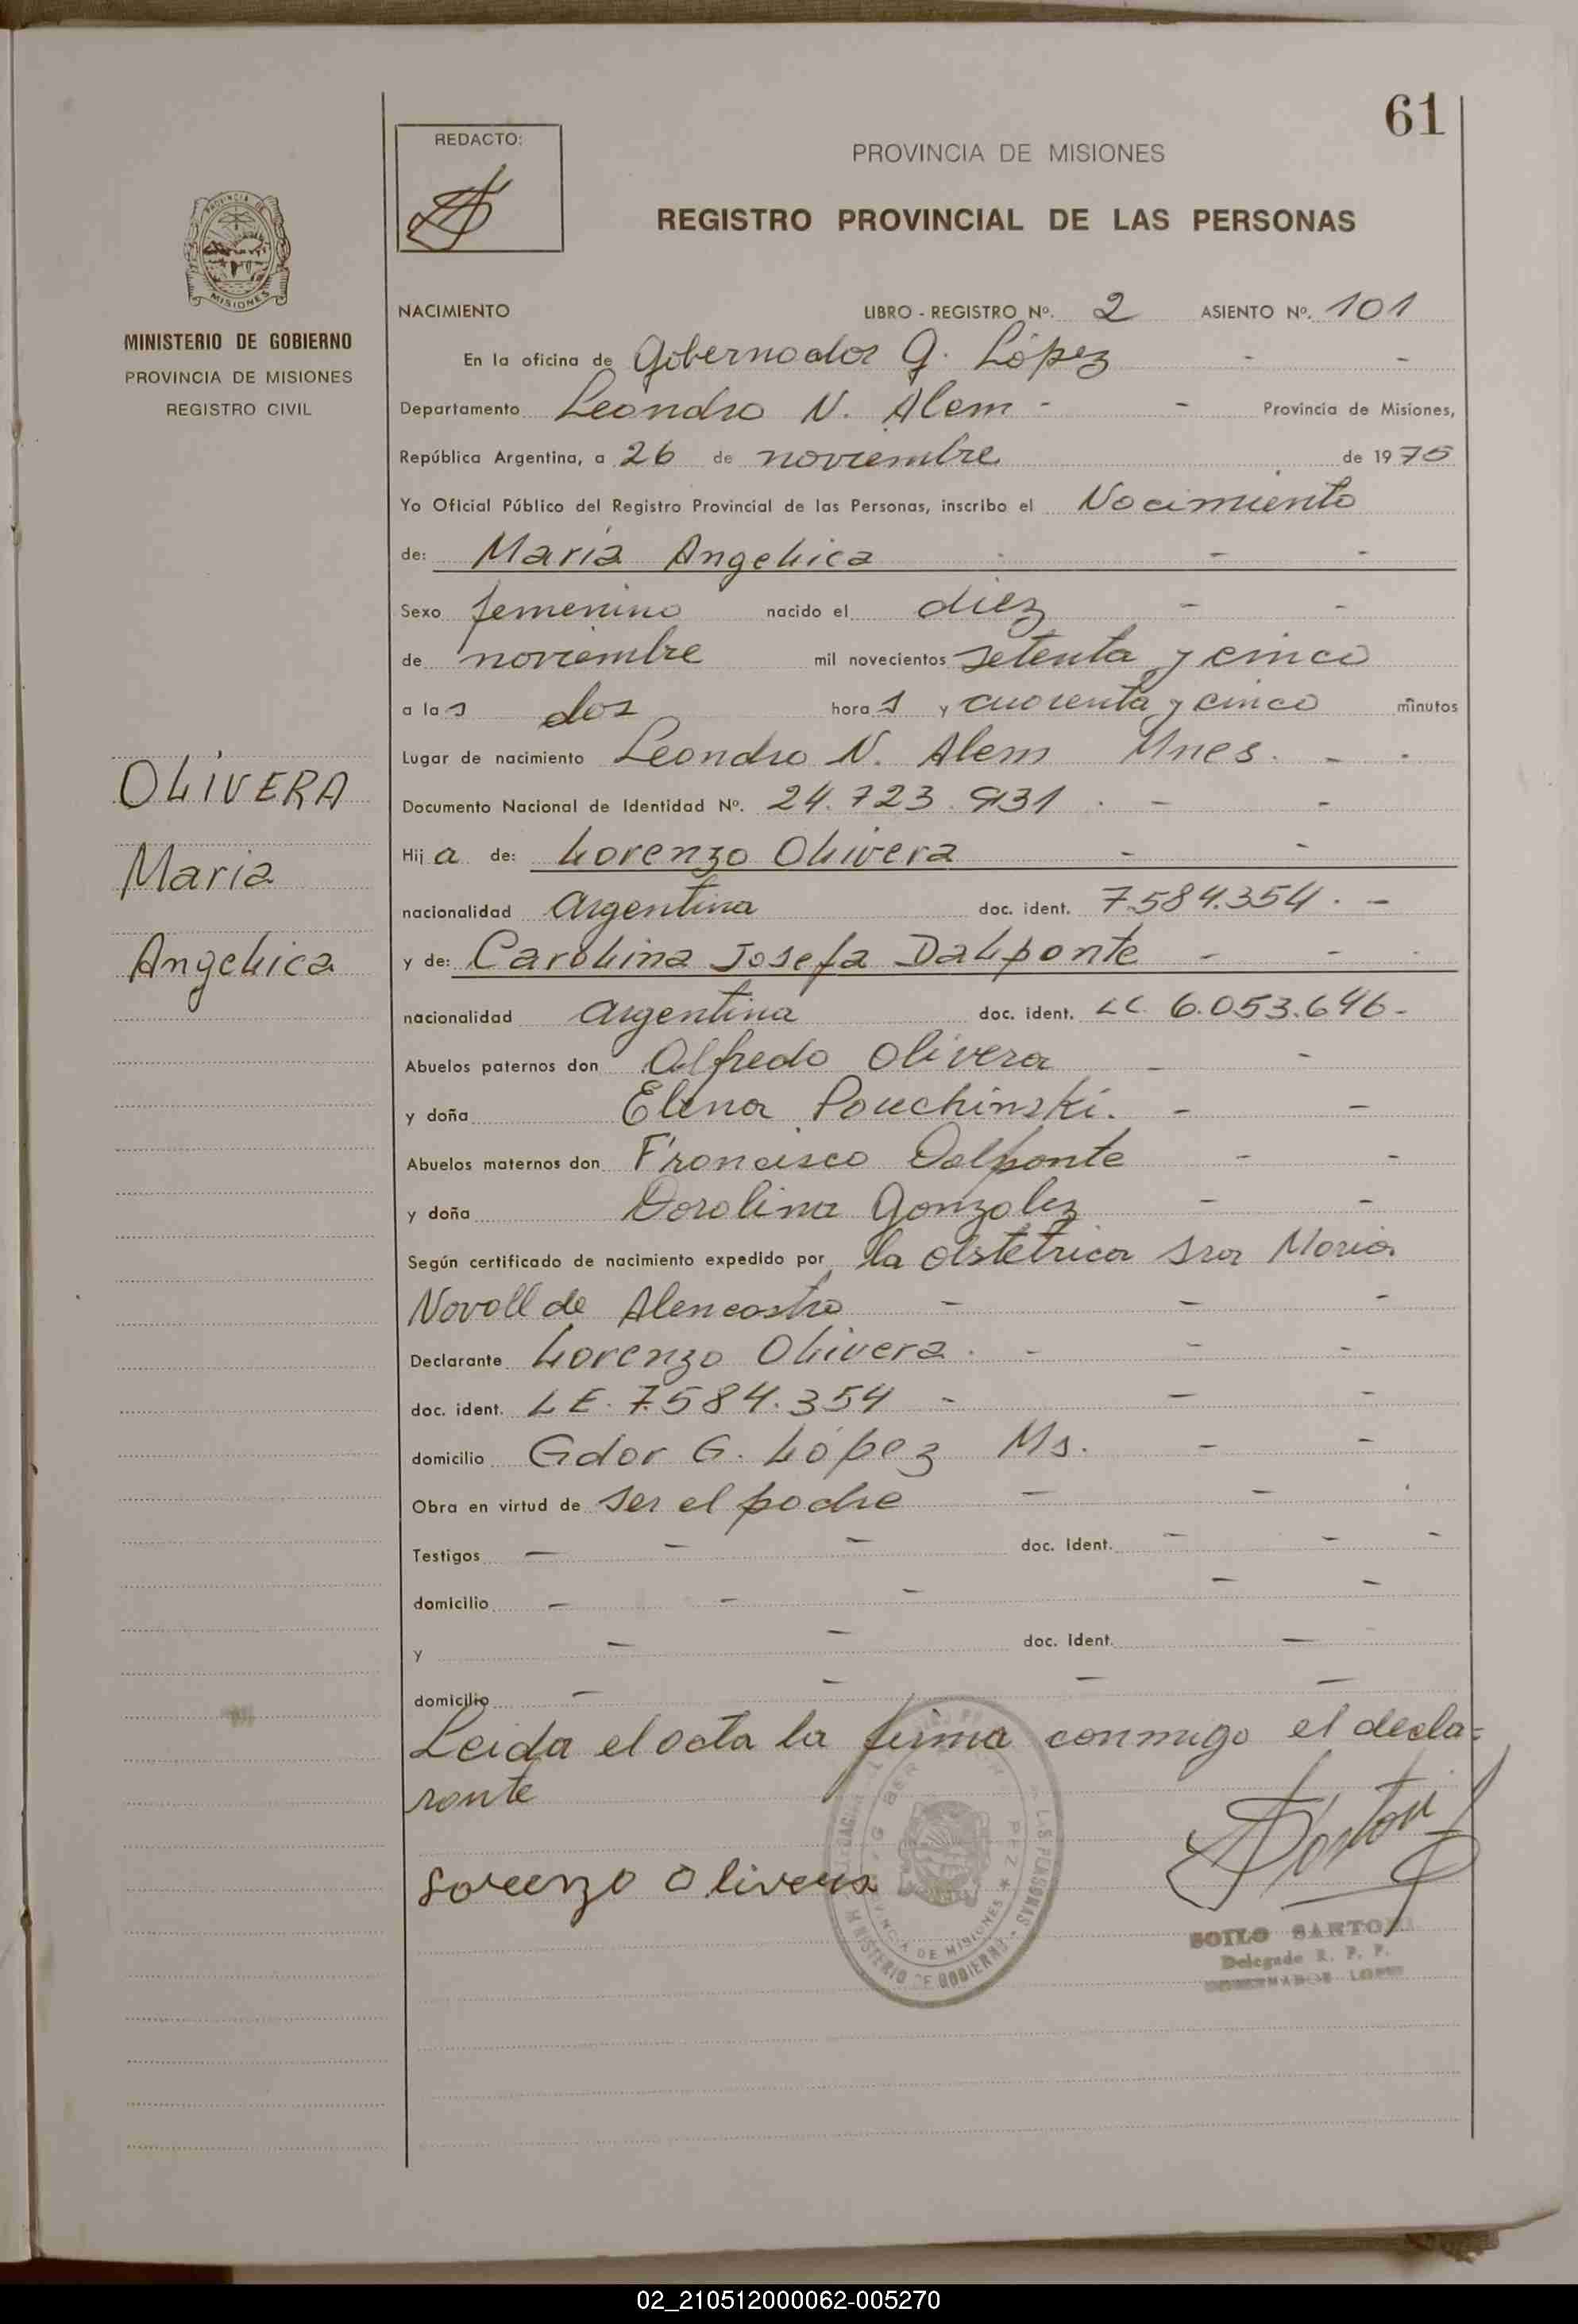 61
REDACTO:
PROVINCIA DE MISIONES
REGISTRO PROVINCIAL DE LAS PERSONAS
PROVINCIA DE
MISIONES
MINISTERIO DE GOBIERNO
PROVINCIA DE MISIONES
REGISTRO CIVIL
NACIMIENTO LIBRO - REGISTRO Nº. 2 ASIENTO Nº. 101
En la oficina de Gobernador G. López - -
Departamento Leandro N. Alem - - Provincia de Misiones,
República Argentina, a 26 de noviembre de 1975
Yo Oficial Público del Registro Provincial de las Personas, inscribo el Nacimiento
de: Maria Angelica - -
Sexo femenino nacido el diez - -
de noviembre mil novecientos setenta y cinco
a las dos horas y cuarenta y cinco minutos
Lugar de nacimiento Leandro N. Alem Mnes. - -
Documento Nacional de Identidad Nº. 24.723.931 - -
Hija de: Lorenzo Olivera - -
nacionalidad argentina doc. ident. 7.584.354. -
y de: Carolina Josefa Dalponte - -
nacionalidad argentina doc. ident. LC. 6.053.646-
Abuelos paternos don Alfredo Olivera - -
y doña Elena Pouchinski. - -
Abuelos maternos don Francisco Dalponte - -
y doña Dorolina Gonzalez - -
Según certificado de nacimiento expedido por la obstetrica sra Maria
Novoll de Alencastro - - -
Declarante Lorenzo Olivera. - - -
doc. ident. LE. 7.584.354 - - -
domicilio Gdor G. López Ms. - -
Obra en virtud de ser el padre - -
Testigos - - - doc. Ident. - - -
domicilio - - - - -
y - - doc. Ident. -
domicilio - - - -
Leida el acta la firma conmigo el decla=
rante
Lorenzo Olivera
OLIVERA
Maria
Angelica
LAS PERSONAS
PROVINCIA DE MISIONES
MINISTERIO DE GOBIERNO
SOILO SARTORI
Delegado R. P. P.
GOBERNADOR LOPEZ
02_210512000062-005270